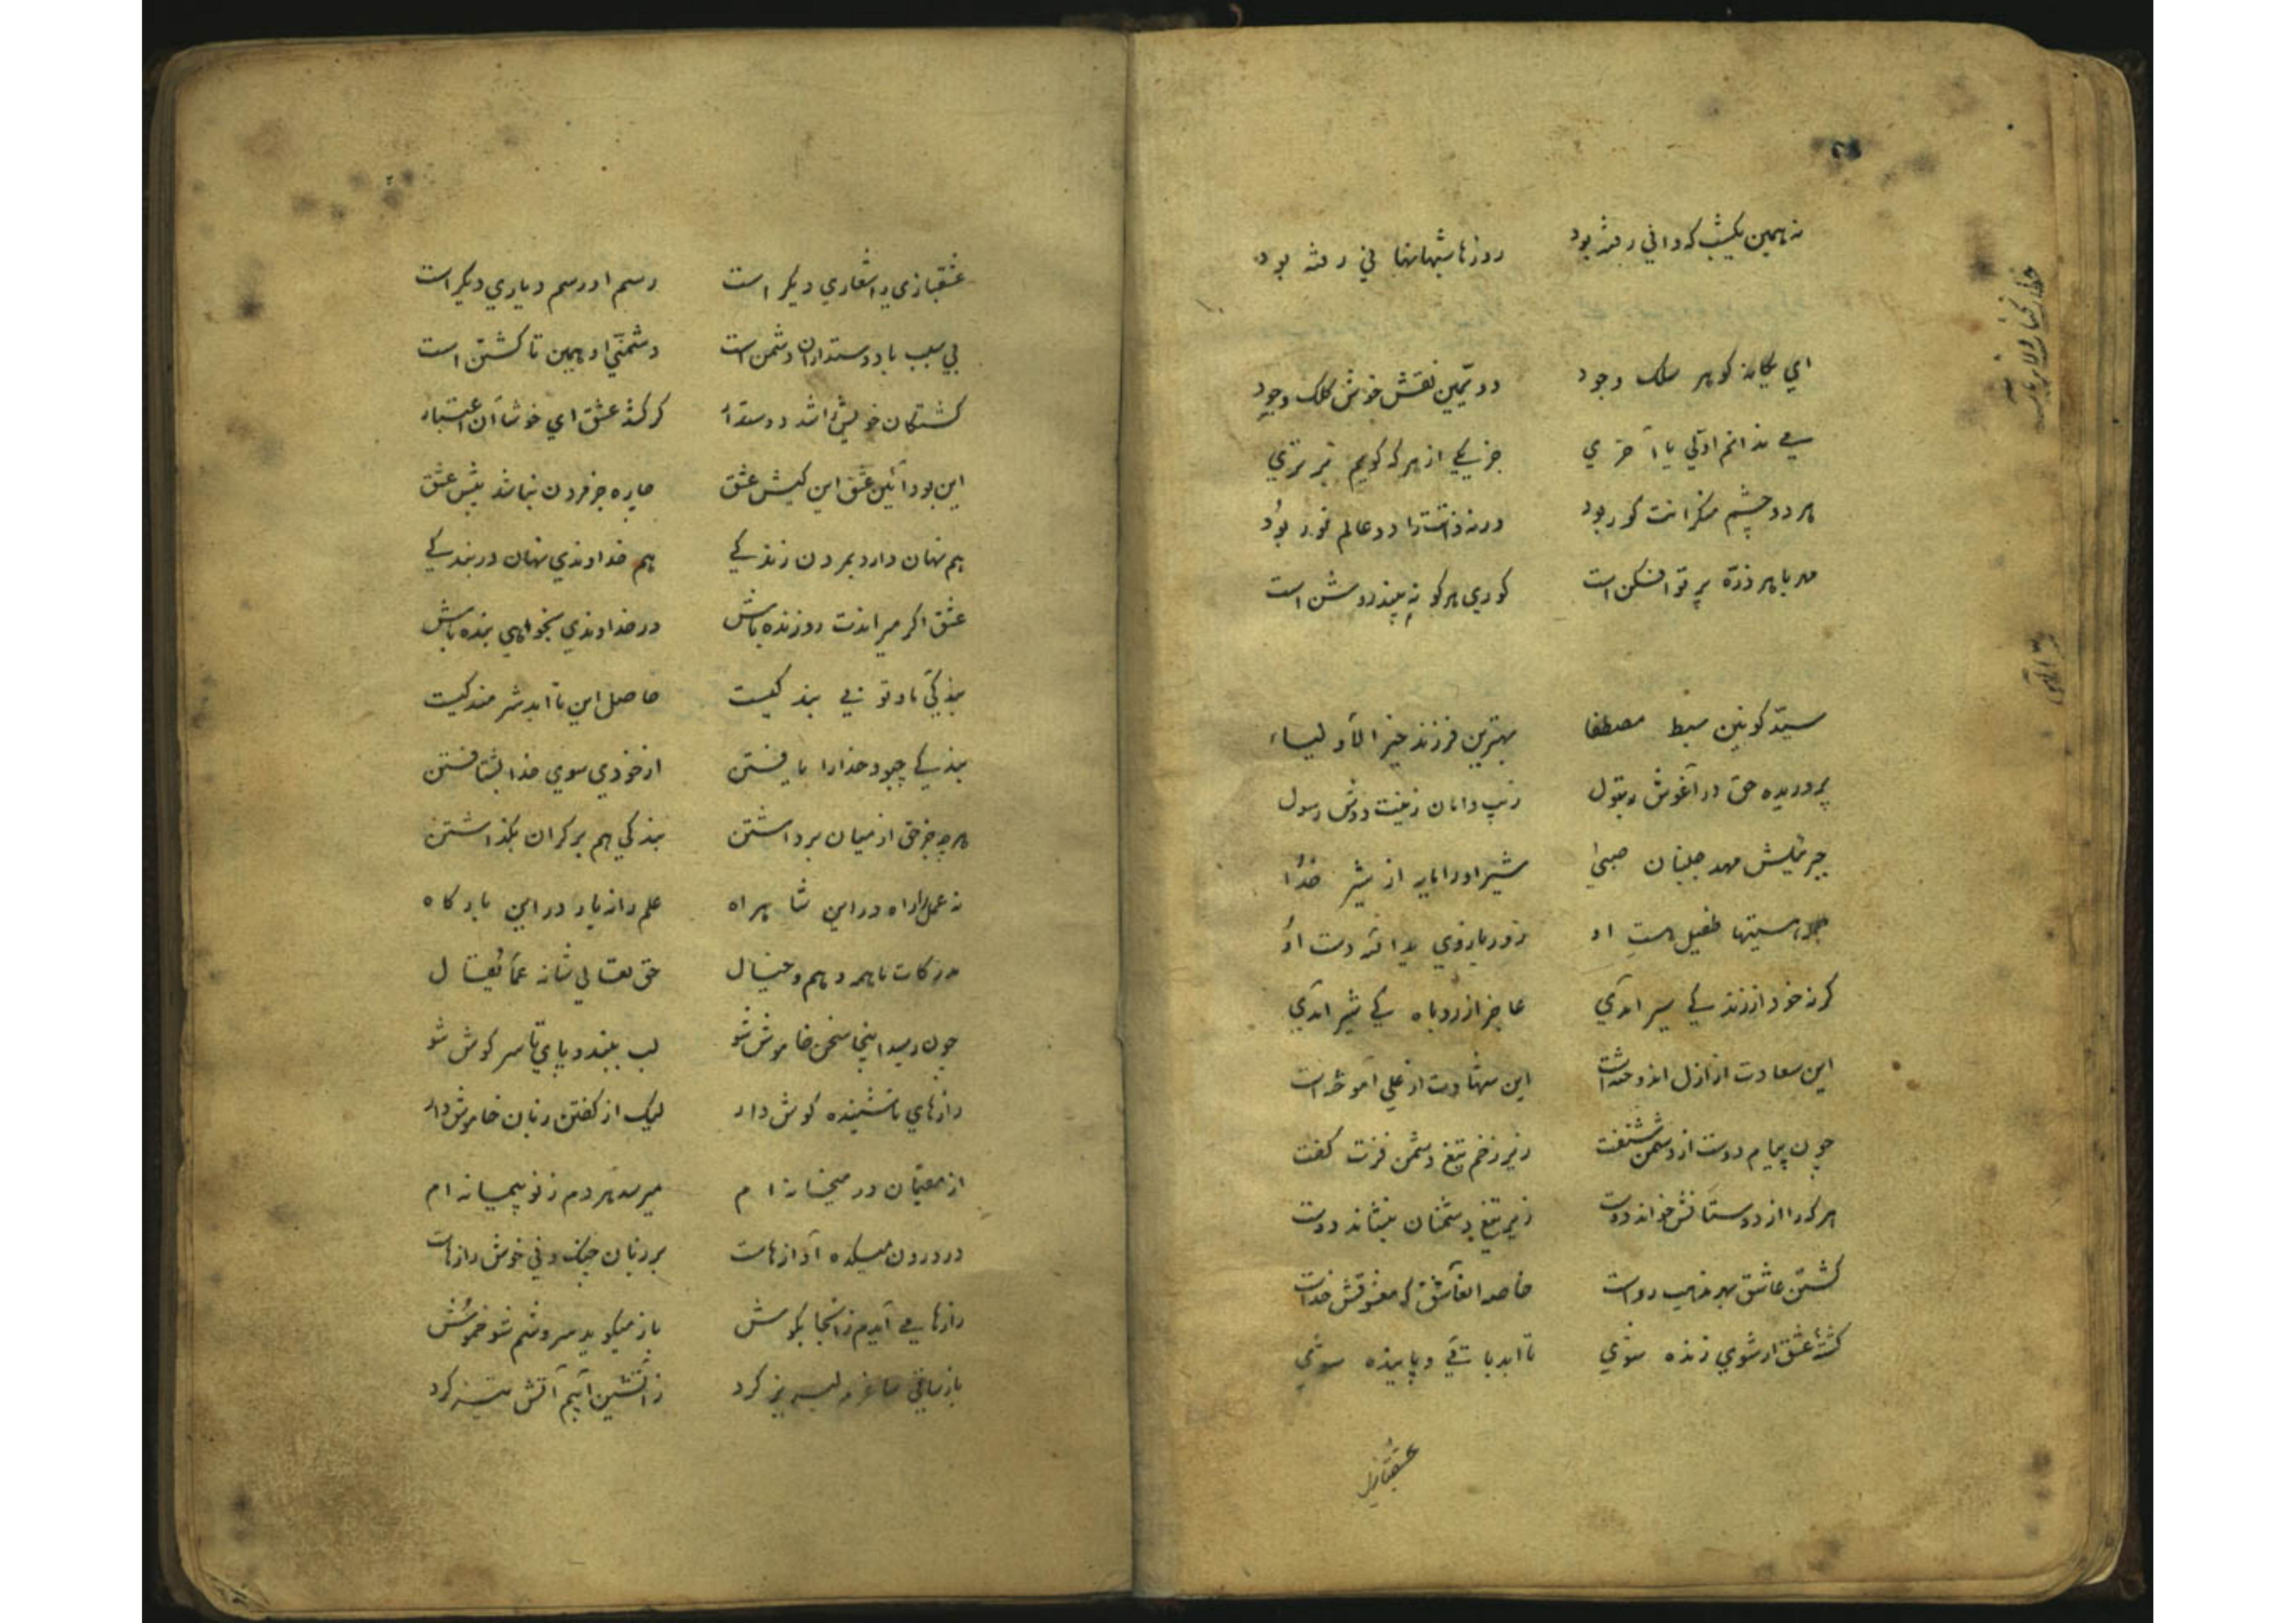 نه همین یکشب که دانی رفته بود روزها شبها نهانی رفته بود
ای یگانه گوهر سلک وجود دویمین نقش خوش کلک وجود
می ندانم اولی یا آخری جز یکی از هر که گویم برتری
هر دو چشم منکرانت کور بود ورنه ذاتت را دو عالم نور بود
مهر با هر ذره پرتو افکن است کوری هر کو نه بیند روشن است
سید کونین سبط مصطفا بهترین فرزند خیر الاولیاء
پروریده حق در آغوش بتول زیب دامان زینت دوش رسول
جبرئیلش مهد جنبان صبی شیر او را دایه از شیر خدا
هستیها طفیل هست او زور بازوی یداله دست او
گرنه خود از زندگی سیر آمدی عاجز از روباه کی شیر آمدی
این سعادت از ازل اندوخته است این شهادت از علی آموخته است
چون پیام دوست از دشمن شنفت زیر زخم تیغ دشمن فزت گفت
هر که را از دوستانش خواند دوست زیر تیغ دشمنان بنشاند دوست
کشتن عاشق بهر مذهب رواست خاصه العاشق که معشوقش خداست
کشته عشق ار شوی زنده شوی تا ابد باقی و پاینده شوی
عشقبازی
عشقبازی را شعاری دیگر است رسم او رسم دیاری دیگر است
بی سبب با دوستداران دشمن است دشمنی او همین تا کشتن است
کشتگان خویش را شد دوستدار گر کشد عشق ای خوشا آن اعتبار
این بود آئین عشق این کیش عشق چاره جز مردن نباشد پیش عشق
هم نهان دارد بمردن زندگی هم خداوندی نهان در بندگی
عشق اگر میراندت رو زنده باش در خداوندی بخواهی بنده باش
بندگی با دتو نی بندگیست حاصل این تا ابد شرمندگیست
بندگی چبود خدا را یافتن از خودی سوی خدا بشتافتن
هر چه جز حق از میان برداشتن بندگی هم بر کران بگذاشتن
نه عمل را راه در این شاهراه علم را نه بار در این بارگاه
مدرکات ما همه وهم و خیال حق تعالی شانه عما یقال
چون رسید اینجا سخن خاموش شو لب ببند و پای تا سر گوش شو
رازهای ناشنیده گوش دار لیک از گفتن زبان خاموش دار
از مقیمان در میخانه ام میرسد هر دم ز نو پیمانه ام
در درون میکده آوازهاست بر زبان چنگ و نی خوش رازهاست
رازها می آیدم زانجا بگوش باز میگوید سروشم شو خموش
باز ساقی ساغرم لبریز کرد ز آتشین آبم آتش تیز کرد